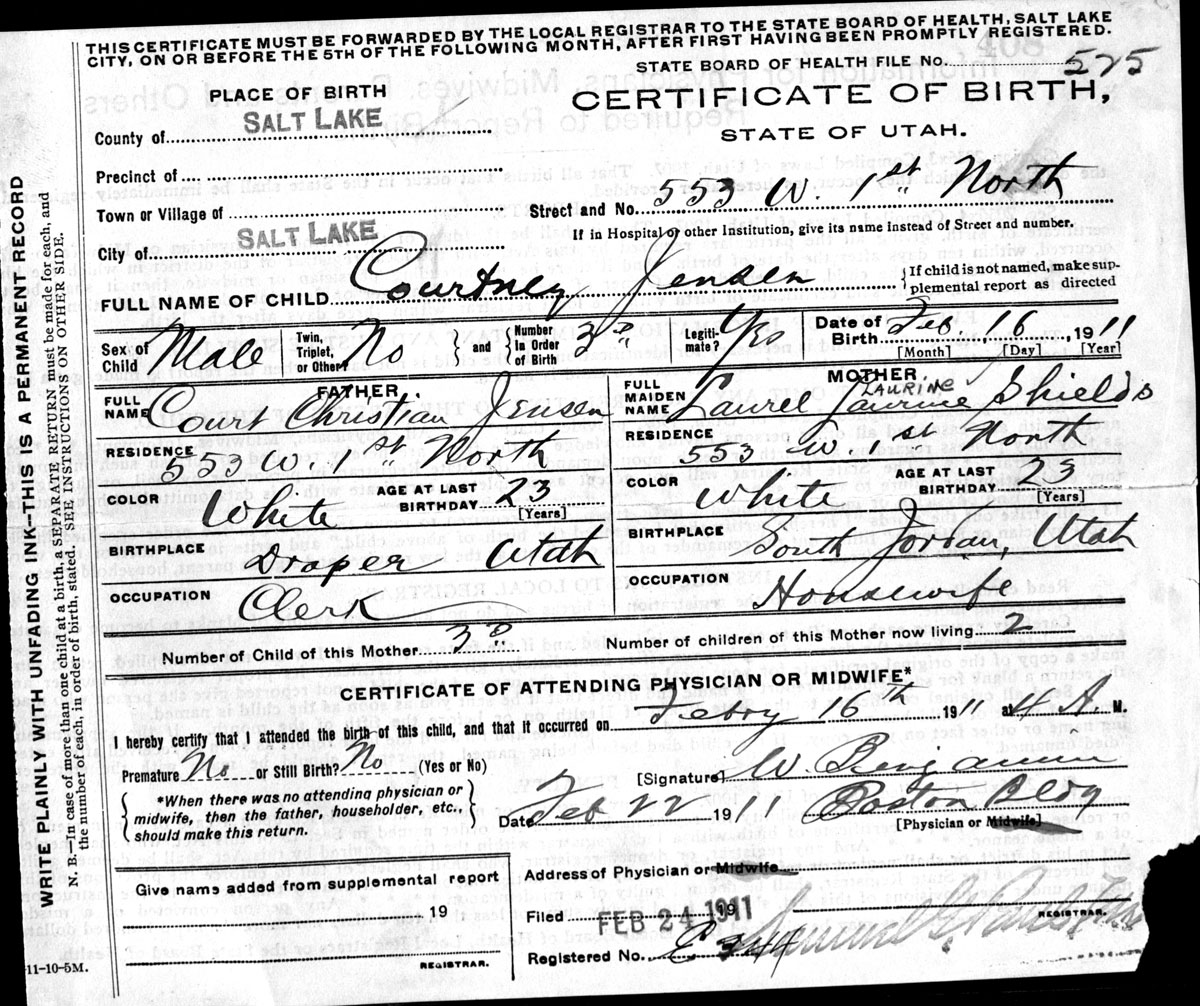 THIS CERTIFICATE MUST BE FORWARDED BY THE LOCAL REGISTRAR TO THE STATE BOARD OF HEALTH, SALT LAKE
CITY, ON OR BEFORE THE 5TH OF THE FOLLOWING MONTH, AFTER FIRST HAVING BEEN PROMPTLY REGISTERED.
STATE BOARD OF HEALTH FILE No. 525
PLACE OF BIRTH
CERTIFICATE OF BIRTH,
STATE OF UTAH.
County of SALT LAKE
Precinct of
Town or Village of
Street and No. 553 W. 1st North
City of SALT LAKE
If in Hospital or other Institution, give its name Instead of Street and number.
FULL NAME OF CHILD Courtney Jensen
If child is not named, make sup-
plemental report as directed
Sex of Child Male
Twin, Triplet, or Other? No
and
Number in Order of Birth 3rd
Legiti-mate? Yes
Date of Birth Feb. 16, 1911
[Month] [Day] [Year]
FATHER
FULL NAME Court Christian Jensen
RESIDENCE 553 W. 1st North
COLOR White
AGE AT LAST BIRTHDAY 23 [Years]
BIRTHPLACE Draper Utah
OCCUPATION Clerk
MOTHER
LAURINE
FULL MAIDEN NAME Laurel Laurine Shields
RESIDENCE 553 W. 1st North
COLOR White
AGE AT LAST BIRTHDAY 23 [Years]
BIRTHPLACE South Jordan, Utah
OCCUPATION Housewife
Number of Child of this Mother 3rd
Number of children of this Mother now living 2
CERTIFICATE OF ATTENDING PHYSICIAN OR MIDWIFE*
I hereby certify that I attended the birth of this child, and that it occurred on Febry 16th 1911 at 4 A. M.
Premature No or Still Birth? No (Yes or No)
[Signature] W. Benjamin
*When there was no attending physician or
midwife, then the father, householder, etc.,
should make this return.
Date Feb 22 1911 Boston Bldg
[Physician or Midwife]
Give name added from supplemental report
19
REGISTRAR.
Address of Physician or Midwife
Filed FEB 24 1911 19
REGISTRAR.
Registered No.
11-10-5M.
WRITE PLAINLY WITH UNFADING INK—THIS IS A PERMANENT RECORD
N. B.—In case of more than one child at a birth, a SEPARATE RETURN must be made for each, and
the number of each, in order of birth, stated. SEE INSTRUCTIONS ON OTHER SIDE.